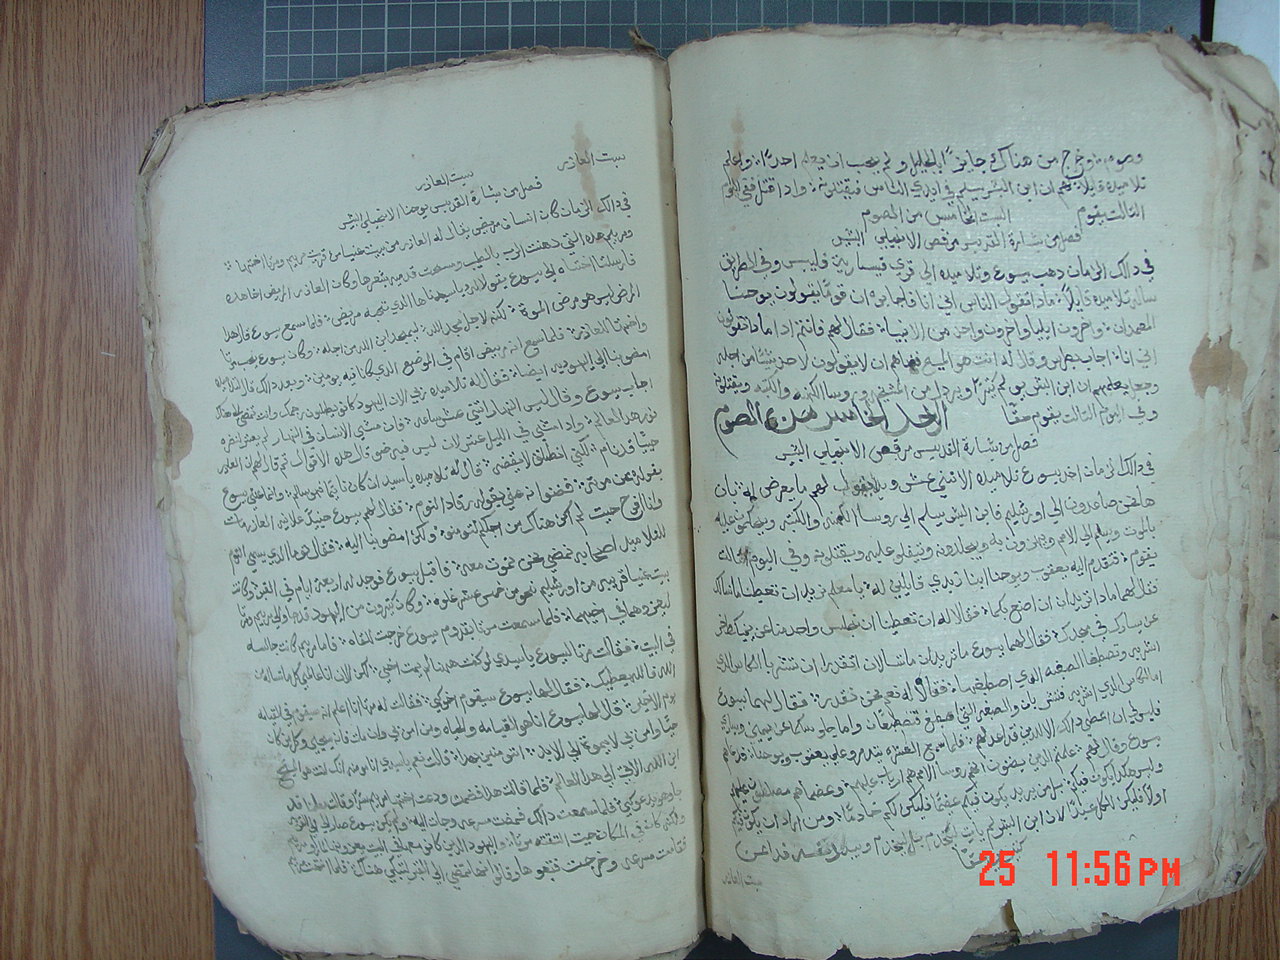 وصوم: وخرج من هناك جايزًا بالجليل ولم يحب ان يعلم احدًا: واعلم
تلاميذه قايلا: لهم ان ابن البشر يسلم في ايدي الناس فيقتلونه: واذا قتل ففي اليوم
الثالث يقوم السبت الخامس من الصوم
فصل من بشارة القديس مرقص الانجيلي البشير
في ذالك الزمان ذهب يسوع وتلاميذه الي قري قيسارية فيلبس وفي الطريق
سال تلاميذه قايلاً: ماذا تقول الناس اني انا فاجابوه ان قومًا يقولون يوحنا
المعمدان: واخرون ايليا واخرون واحد من الانبيا: فقال لهم فانتم ماذا تقولون
اني انا: اجاب بطرس وقال له انت هو المسيح فنهاهم ان لا يقولون لاحد شيئًا من اجله
وجعل يعلمهم ان ابن البشر يولم كثيرًا ويرذل من المشيخه وروسا الكهنه والكتبه ويقتلونه
وفي اليوم الثالث يقوم حقًا الاحد الخامس من الصوم
فصل من بشارة القديس مرقص الانجيلي البشير
في ذالك الزمان اخذ يسوع تلاميذه الاثني عشر وبدا يقول لهم ما يعرض له: بان
ها نحن صاعدون الي اورشليم فابن البشر يسلم الي روسا الكهنه والكتبه ويحكمون عليه
بالموت ويسلم الي الامم ويهزون به ويجلدونه ويتفلو عليه ويقتلونه وفي اليوم الثالث
يقوم: فتقدم اليه يعقوب ويوحنا ابنا زبدي قايلين له: يا معلم نريد ان تعطينا ما نسالك
فقال لهما ماذا تريدان ان اصنع لكما: فقالا له ان تعطينا ان نجلس واحد منا عن يمينك والاخر
عن يسارك في مجدك: فقال لهما يسوع ما تريدان ما تسالان اتقدران ان تشربا الكاس الذي
اشربه وتصطبغا الصبغه الذي اصطبغها: فقالا له نعم نحن نقدر: فقال لهما يسوع
اما الكاس الذي اشربه فتشربان والصبغه التي اصطبغ تصطبغان واما جلوسكما عن يميني ويساري
فليس لي ان اعطي ذالك الا للذين قد اعد لهم: فلما سمع العشره بتذمروا علي يعقوب ويوحنا: فدعاهم
يسوع وقال لهم: علمتم الذين يظنون انهم روسا الامم هم ارباب عليهم: وعظماهم مسلطين عليهم
وليس هكذا يكون فيكم: بل من يريد يكون فيكم عظيمًا فليكن لكم خادمًا: ومن اراد ان يكون فيكم
اولاً فليكن للكل عبدًا لان ابن البشر لم يات ليخدم بل ليخدم ويبذل نفسه فدا عن
كثيرين حقًا
سبت العازر
سبت العازر سبت العازر
فصل من بشارة القديس يوحنا الانجيلي البشير
في ذالك الزمان كان انسان مريض يقال له العازر من بيت عنيا من قرية مريم ومرتا اختها:
ومريم هذه التي دهنت الرب بالطيب ومسحت قدميه بشعرها وكان العازر المريض اخا هذه
فارسلتا اختاه الي يسوع يقولان يا سيد ها الذي تحبه مريض: فلما سمع يسوع قال هذا
المرض ليس هو مرض الموت: لكنه لاجل مجد الله: ليمجد ابن الله من اجله: وكان يسوع يحب مرتا
واختها العازر: فلما سمع انه مريض اقام في الموضع الذي كان فيه يومين: وبعد ذالك قال لتلاميذه
امضوا بنا الي اليهوديه ايضا: فقال له تلاميذه يا ربي الان اليهود كانو يطلبون رجمك وانت تمضي الي هناك
اجاب يسوع وقال اليس النهار اثنتي عشر ساعه: فان مشي الانسان في النهار لم يعثر لنظره
نور هذا العالم: واذا مشي في الليل عثر لان ليس فيه ضو قال هذه الاقوال ثم قال لهم ان العازر
حبيبًا قد نام: لكني انطلق لايقظه: قال له تلاميذه يا سيد ان كان نايمًا فهو سالم: وانما عني يسوع
بقوله عن موته: فظنوا انه عني بقوله رقاد النوم: فقال لهم يسوع حينيذ علانيه العازر مات
وانا افرح حيث لم اكن هناك من اجلكم لتومنو: ولكن امضو بنا اليه: فقال توما الذي يسمي التوم
للتلاميذ اصحابه نمضي نحن نموت معه: فاقبل يسوع فوجد له اربعة ايام في القبر: وكانت
بيت عنيا قريبه من اورشليم نحو من خمس عشر غلوه: وكان كثيرون من اليهود قد جاو الي مريم ومرتا
ليعزوهما في اخيهما: فلما سمعت مرتا بقدوم يسوع خرجت للقاه: فاما مريم كانت جالسه
في البيت: فقالت مرتا ليسوع يا سيدي لو كنت ههنا لم يمت اخي: لكن الان انا عالمه ان كل ما تساله
الله فالله يعطيك: فقال لها يسوع سيقوم اخوكي: فقالت له مرتا انا اعلم انه سيقوم في القيامه
يوم الاخير: قال لها يسوع انا هو القيامه والحياه ومن امن بي وان مات فانه سيحيي وكل من كان
حيًا وامن بي لا يموت الي الابد: اتومنين بهذا: قالت نعم يا سيدي انا مومنه انك انت هو المسيح
ابن الله الاتي الي هذا العالم: فلما قالت هذا فمضت ودعت اختها مريم سرًا وقالت معلمنا قد
جا وهو يدعوكي: فلما سمعت ذالك نهضت مسرعه وجات اليه: ولم يكن يسوع صار الي القريه
ولكنه كان في المكان حيث التقته مرتا: واليهود الذين كانو معها في البيت يعزونها لما راو مريم
قد قامت مسرعه وخرجت فتبعوها وقالو انها تمضي الي القبر لتبكي هناك: فلما انتهت مريم
25 11:56 PM